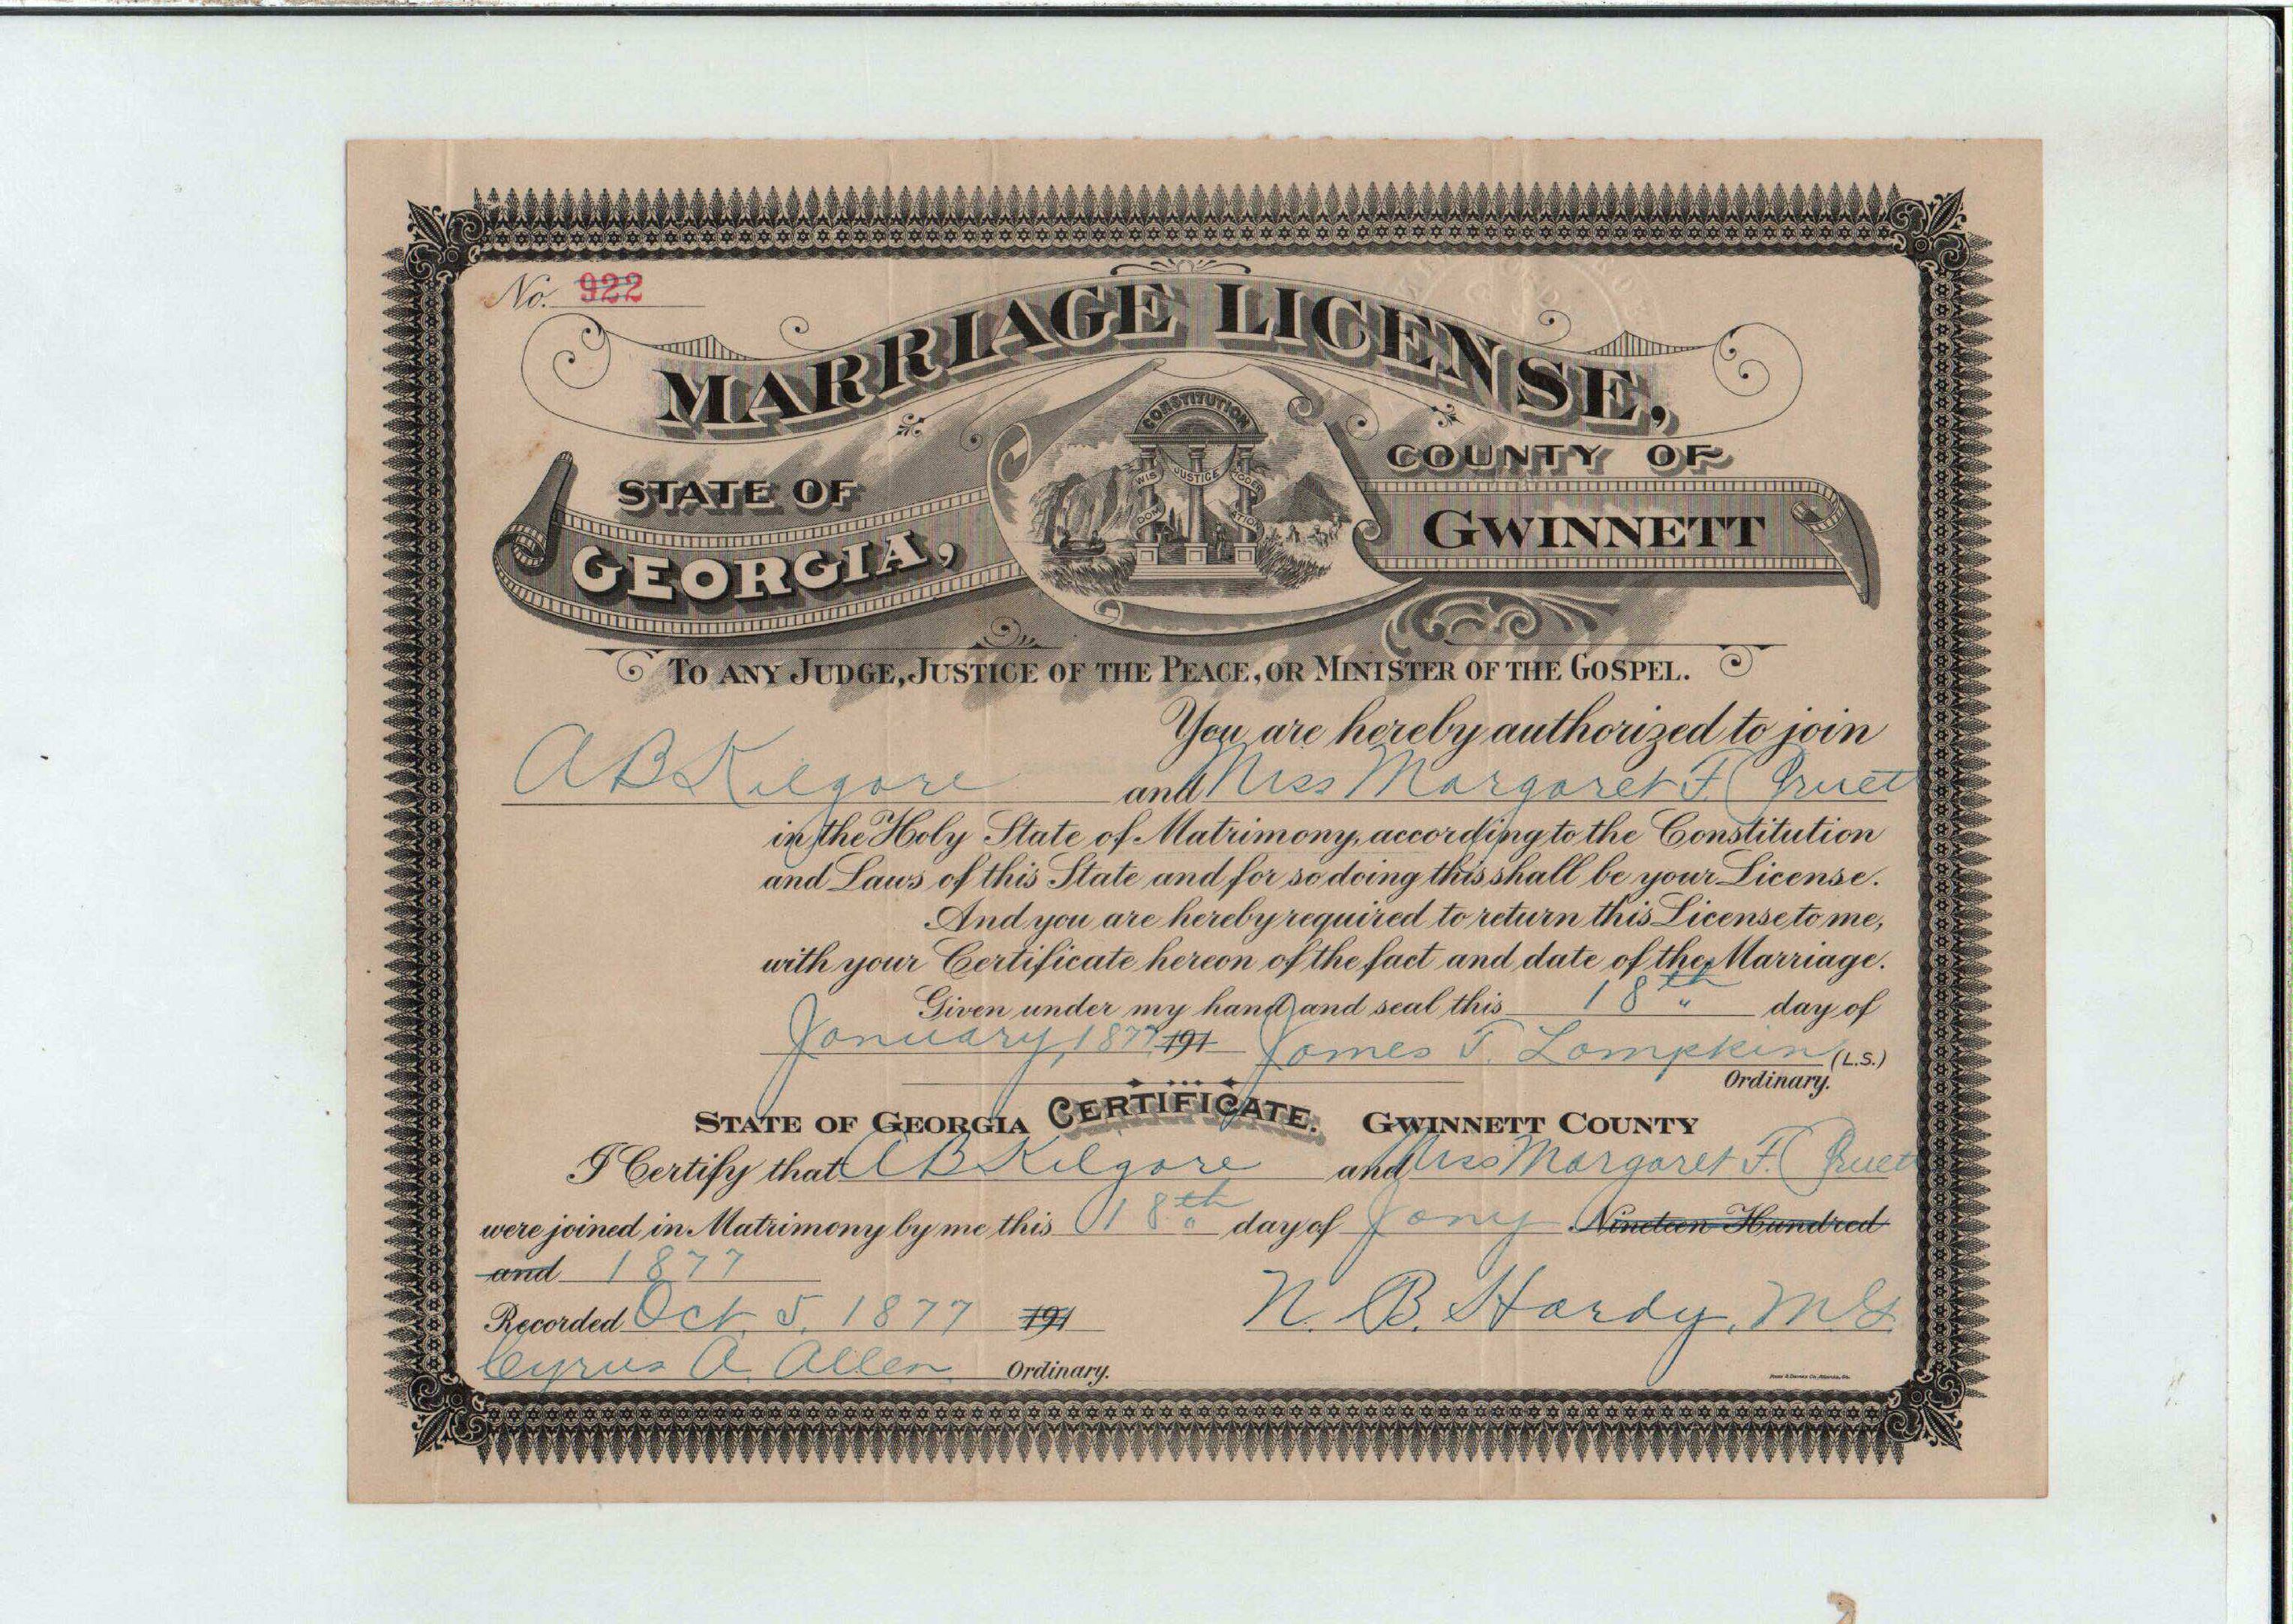 No. 922
MARRIAGE LICENSE,
STATE OF GEORGIA,
COUNTY OF GWINNETT
CONSTITUTION
WISDOM JUSTICE MODERATION
TO ANY JUDGE, JUSTICE OF THE PEACE, OR MINISTER OF THE GOSPEL.
You are hereby authorized to join
A B Kilgore and Miss Margaret F. Pruet
in the Holy State of Matrimony, according to the Constitution
and Laws of this State and for so doing this shall be your License.
And you are hereby required to return this License to me,
with your Certificate hereon of the fact and date of the Marriage.
Given under my hand and seal this 18th day of
January, 1877 191 James T. Lampkin (L.S.)
Ordinary.
STATE OF GEORGIA CERTIFICATE. GWINNETT COUNTY
I Certify that A B Kilgore and Miss Margaret F. Pruet
were joined in Matrimony by me this 18th day of Jany Nineteen Hundred
and 1877
Recorded Oct. 5, 1877 191 N. B. Hardy, MG
Cyrus A. Allen Ordinary.